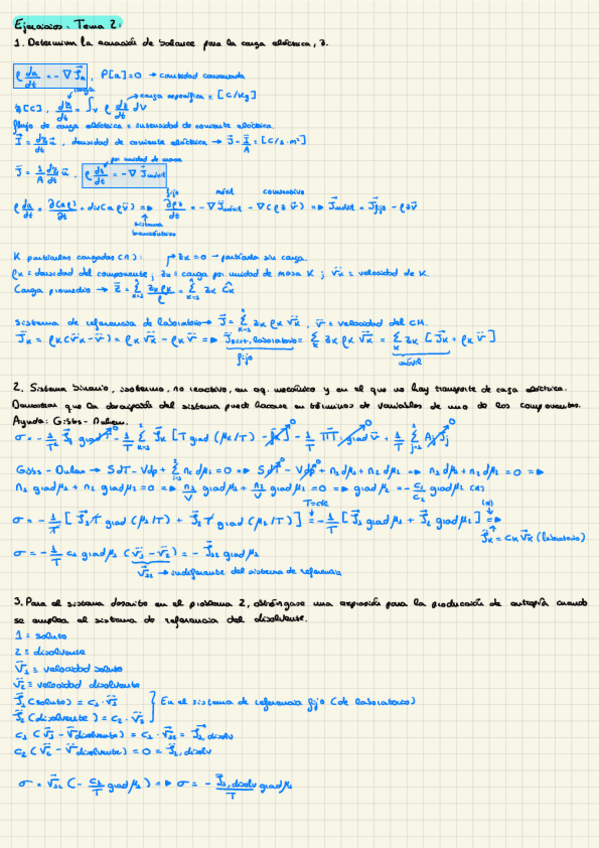 Ejercicios. Tema 2.
1. Determinar la ecuación de balance para la carga eléctrica, z.
ρ da/dt = -∇ J⃗a , P[a]=0 → cantidad conservada
carga
z[C], dz/dt = ∫v ρ dz/dt dV → carga específica = [C/kg]
flujo de carga eléctrica = intensidad de corriente eléctrica.
I⃗ = dz/dt u⃗ , densidad de corriente eléctrica → J⃗ = I⃗/A = [C/s·m²]
por unidad de masa
J⃗ = 1/A dz/dt u⃗ , ρ dz/dt = -∇ J⃗móvil
fijo móvil convectivo
ρ da/dt = ∂(aρ)/∂t + div(aρv⃗) => ∂ρz/∂t = -∇J⃗móvil - ∇(ρzv⃗) => J⃗móvil = J⃗fijo - ρzv⃗
sistema
K partículas cargadas (n): zk=0 → partícula sin carga.
ρk = densidad del componente; zk = carga por unidad de masa K; v⃗k = velocidad de K.
Carga promedio → z = Σ zkρk/ρ = Σ zk Ck
sistema de referencia de laboratorio → J⃗ = Σ zk ρk v⃗k, v⃗ = velocidad del CM.
J⃗k = ρk(v⃗k - v⃗) = ρk v⃗k - ρk v⃗ => J⃗ = Σ zk ρk v⃗k = Σ zk [J⃗k + ρk v⃗]
fijo móvil
2. Sistema binario, isotermo, no reactivo, en eq. mecánico y en el que no hay transporte de carga eléctrica.
Demostrar que la disipación del sistema puede hacerse en términos de variables de uno de los componentes.
Ayuda: Gibbs-Duhem.
Gibbs-Duhem → SdT - Vdp + Σ ni dμi = 0 => SdT - Vdp + n1dμ1 + n2dμ2 = 0 => n1dμ1 + n2dμ2 = 0 =>
n1 gradμ1 + n2 gradμ2 = 0 => n1/V gradμ1 + n2/V gradμ2 = 0
T=cte
σ = -1/T [J⃗1 T grad (μ1/T) + J⃗2 T grad (μ2/T)] = -1/T [J⃗1 gradμ1 + J⃗2 gradμ2] =>
J⃗k = ck v⃗k (laboratorio)
→ indiferente del sistema de referencia
3. Para el sistema descrito en el problema 2, obténgase una expresión para la producción de entropía cuando
se emplea el sistema de referencia del disolvente.
1 = soluto
2 = disolvente
v⃗1 = velocidad soluto
v⃗2 = velocidad disolvente
J⃗1 (soluto) = c1 · v⃗1
En el sistema de referencia fijo (de laboratorio)
J⃗2 (disolvente) = c2 · v⃗2
c1 (v⃗1 - v⃗disolvente) = c1 · v⃗12 = J⃗1,disolv
c2 (v⃗2 - v⃗disolvente) = 0 = J⃗2,disolv
σ = v⃗12 (- c1/T gradμ1) => σ = - J⃗1,disolv/T gradμ1